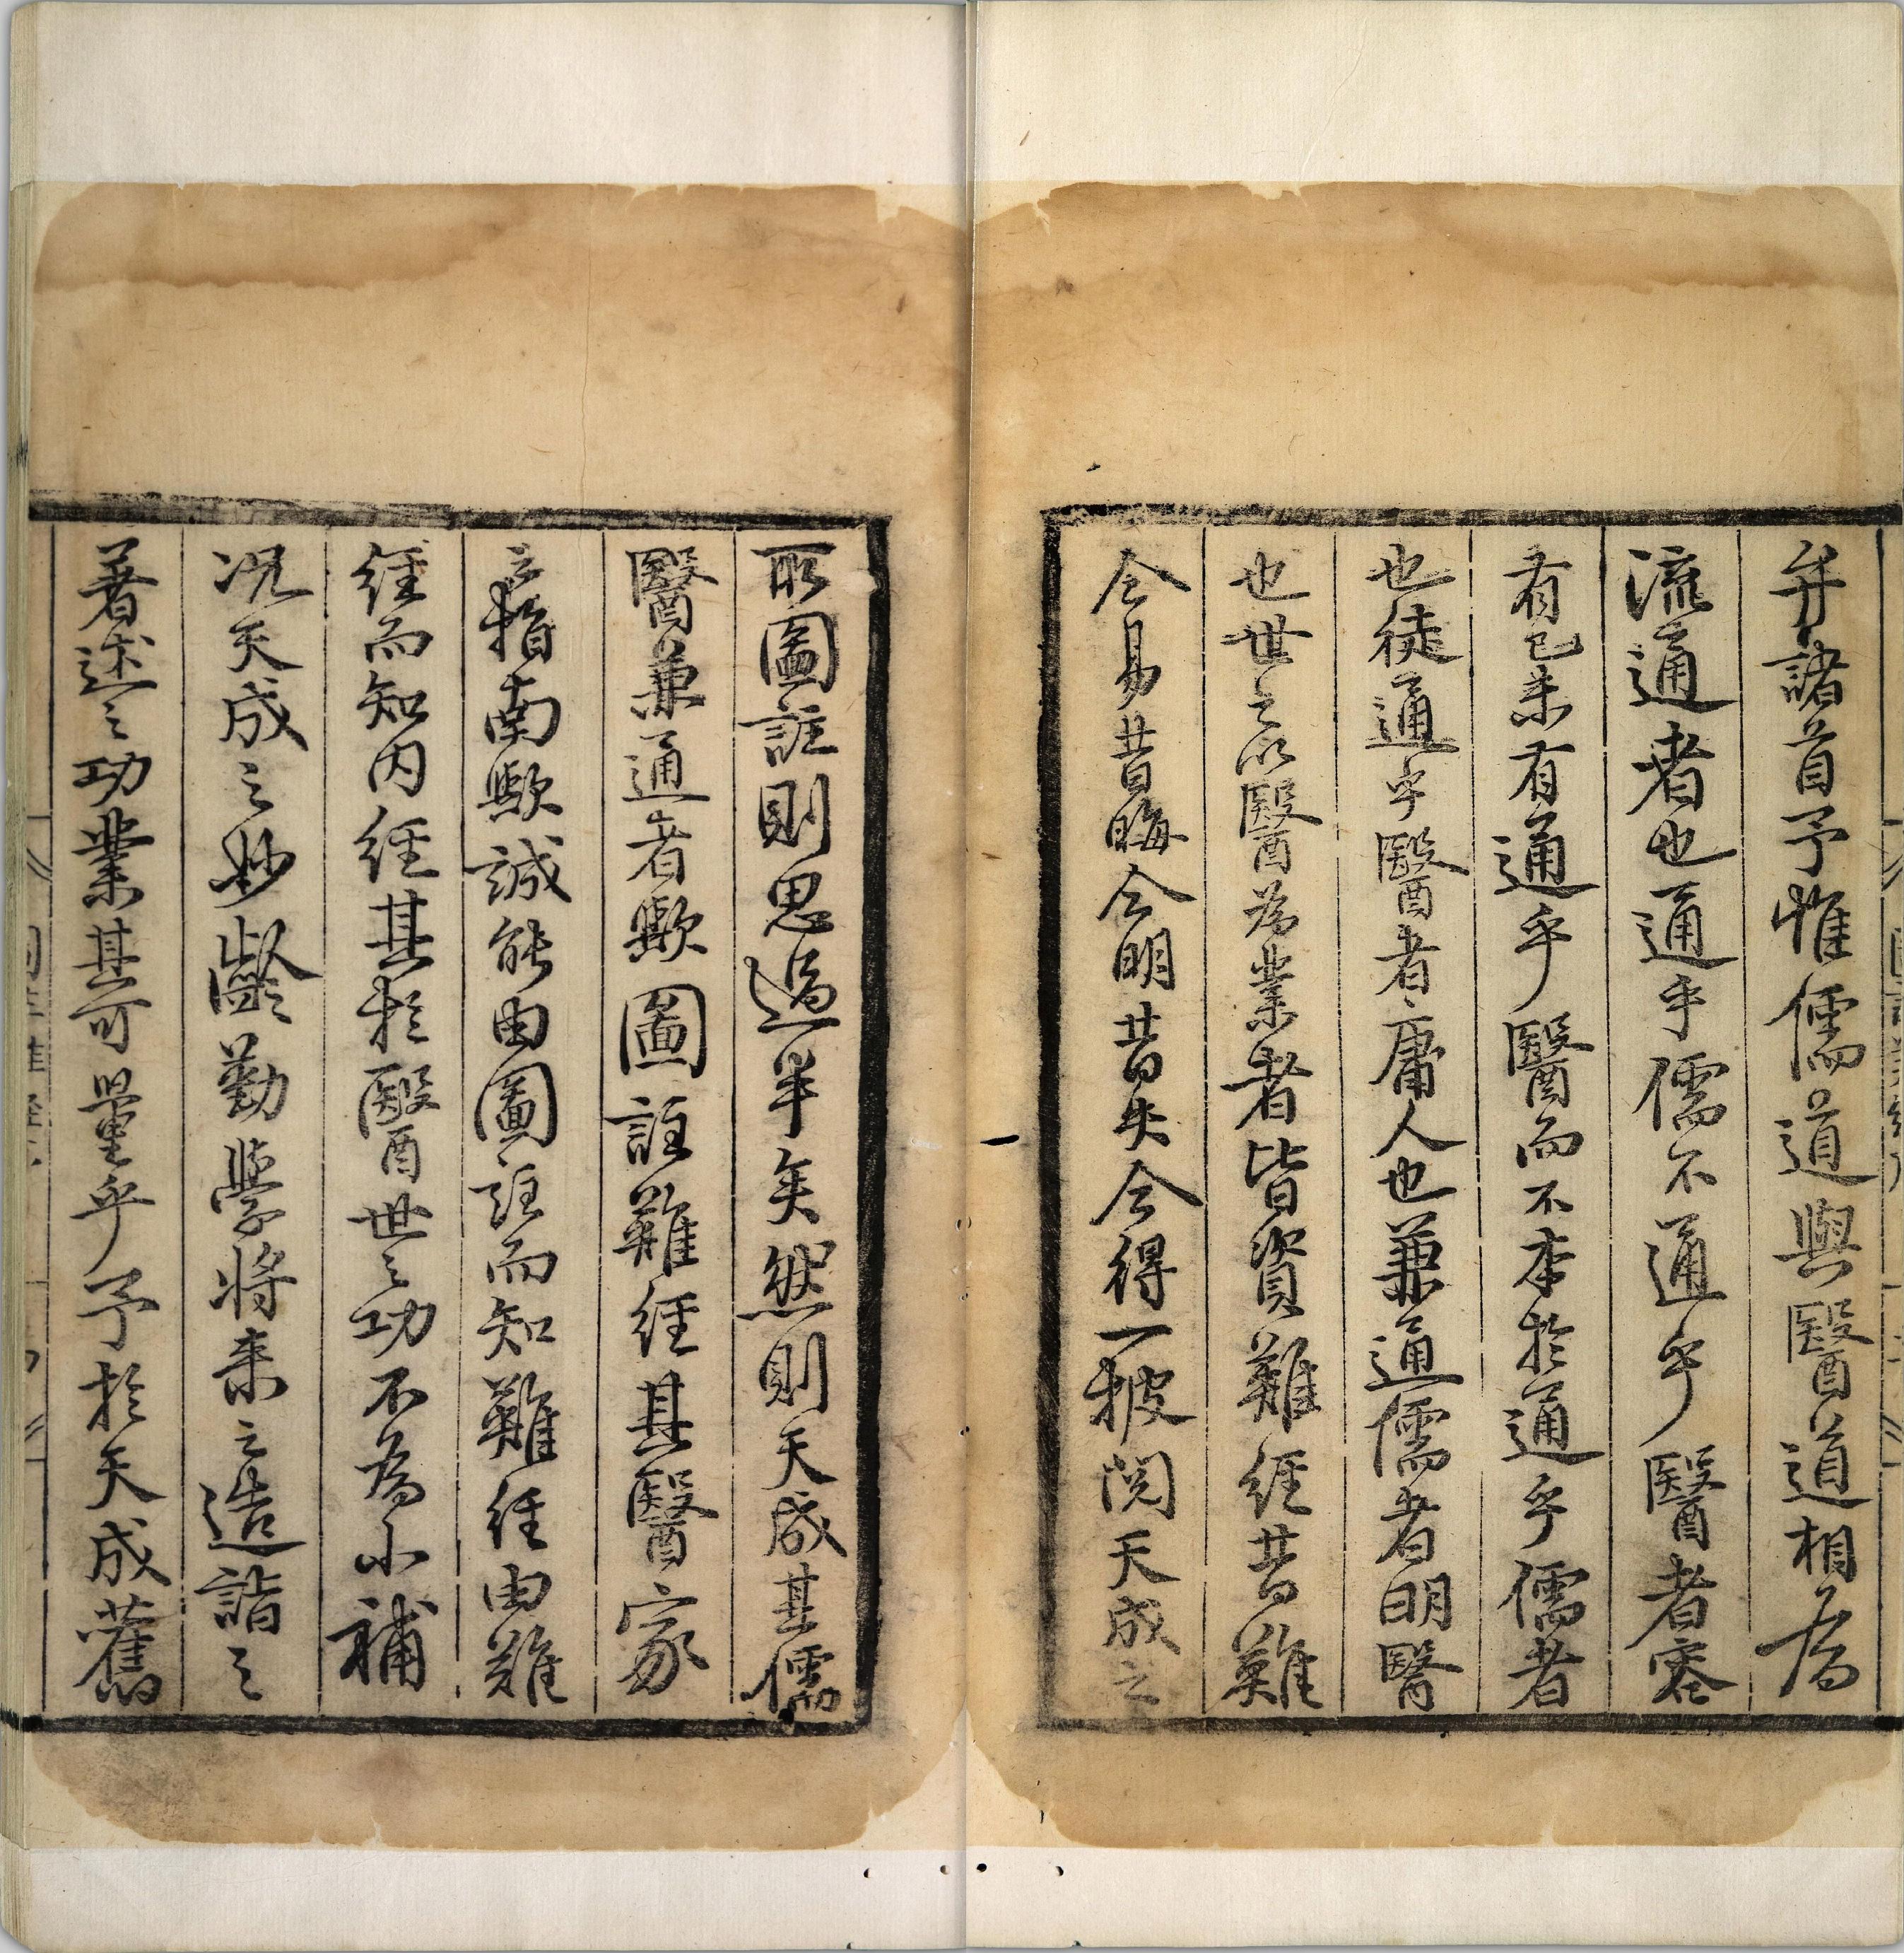 弁諸首予惟儒道與醫道相為
流通者也通乎儒不通乎醫者容
有已未有通乎醫而不本於通乎儒者
也徒通乎醫者庸人也兼通儒者明醫
也世之以醫為業者皆資難經昔難
今易昔晦今明昔失今得一披閱天成之
所圖註則思過半矣然則天成其儒
醫兼通者歟圖註難經其醫家
之指南歟誠能由圖註而知難經由難
經而知内經其於醫世之功不為小補
况天成之妙齡勤學将来之造詣之
著述之功業其可量乎予於天成舊